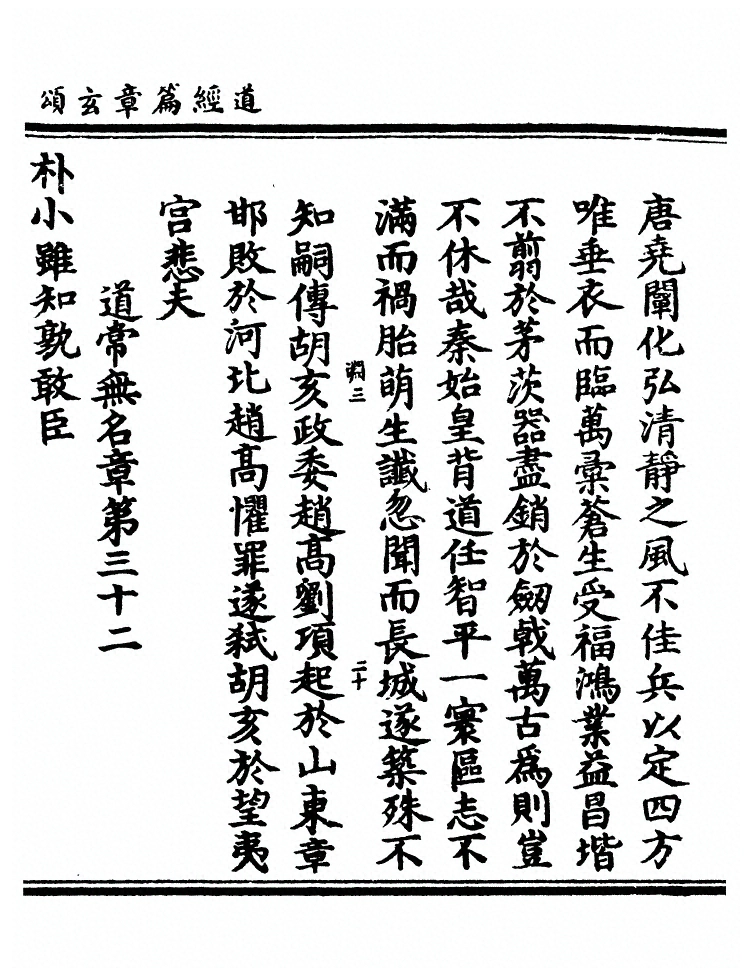 道經篇章玄頌
唐堯闡化弘清靜之風不佳兵以定四方
唯垂衣而臨萬彙蒼生受福鴻業益昌堦
不翦於茅茨器盡銷於劒戟萬古爲則豈
不休哉秦始皇背道任智平一寰區志不
滿而禍胎萌生讖忽聞而長城遂築殊不
淵三
二十
知嗣傳胡亥政委趙高劉項起於山東章
邯敗於河北趙高懼罪遂弒胡亥於望夷
宮悲夫
道常無名章第三十二
朴小雖知孰敢臣